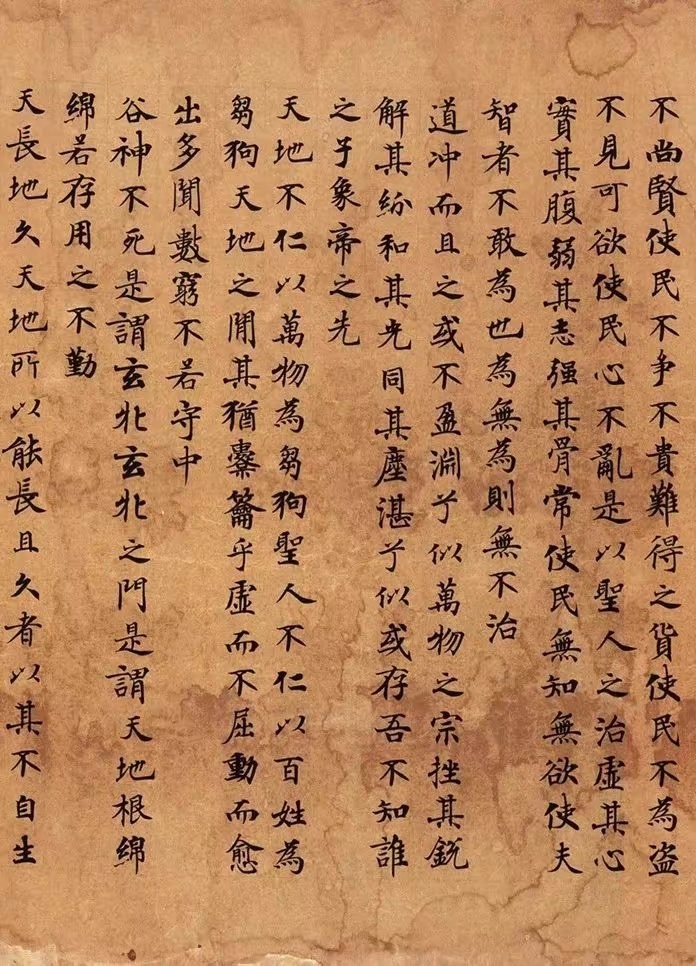 不尚賢使民不争不貴難得之貨使民不為盗
不見可欲使民心不亂是以聖人之治虛其心
實其腹弱其志强其骨常使民無知無欲使夫
智者不敢為也為無為則無不治
道冲而且之或不盈淵兮似萬物之宗挫其銳
解其紛和其光同其塵湛兮似或存吾不知誰
之子象帝之先
天地不仁以萬物為芻狗聖人不仁以百姓為
芻狗天地之間其猶橐籥乎虛而不屈動而愈
出多聞數窮不若守中
谷神不死是謂玄牝玄牝之門是謂天地根綿
綿若存用之不勤
天長地久天地所以能長且久者以其不自生